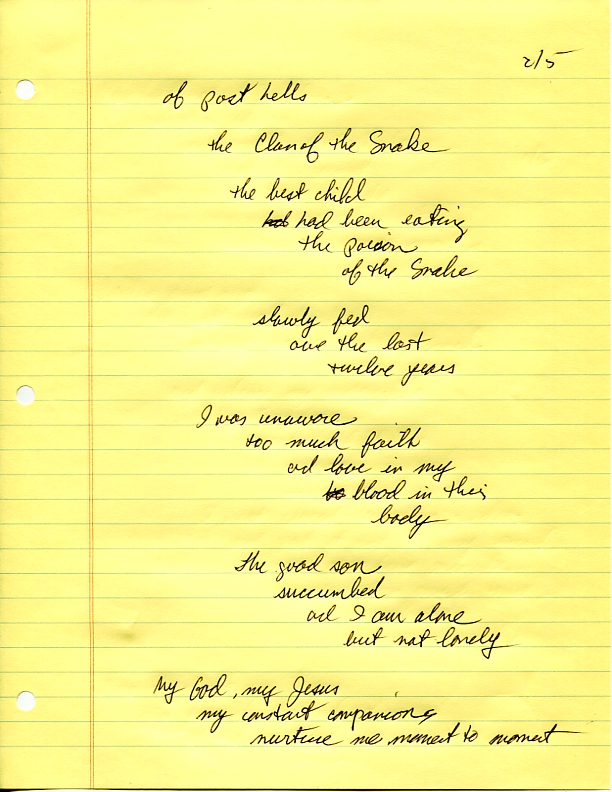 2/5
of past hells
the Clan of the Snake
the best child
had had been eating
the poison
of the Snake
slowly fed
ove the last
twelve years
I was unaware
too much faith
ad love in my
blood in their
body
the good son
succumbed
ad I am alone
but not lonely
My God, my Jesus
my constant companions
nurture me moment to moment